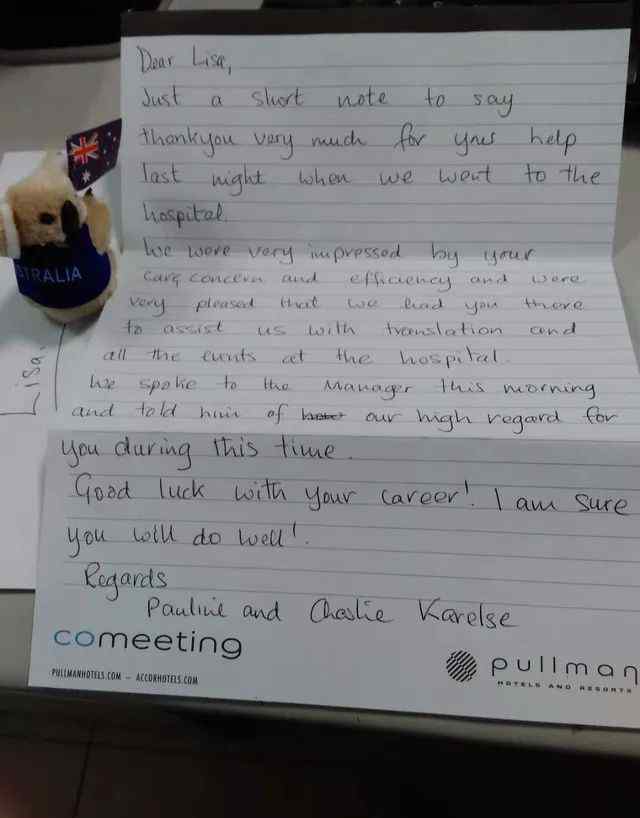 Dear Lisa,
Just a short note to say
thankyou very much for your help
last night when we went to the
hospital.
We were very impressed by your
care, concern and efficiency and were
very pleased that we had you there
to assist us with translation and
all the events at the hospital.
We spoke to the Manager this morning
and told him of our high regard for
you during this time.
Good luck with your career! I am sure
you will do well!
Regards
Pauline and Charlie Karelse
comeeting
PULLMANHOTELS.COM – ACCORHOTELS.COM
pullman
HOTELS AND RESORTS
STRALIA
Lisa.